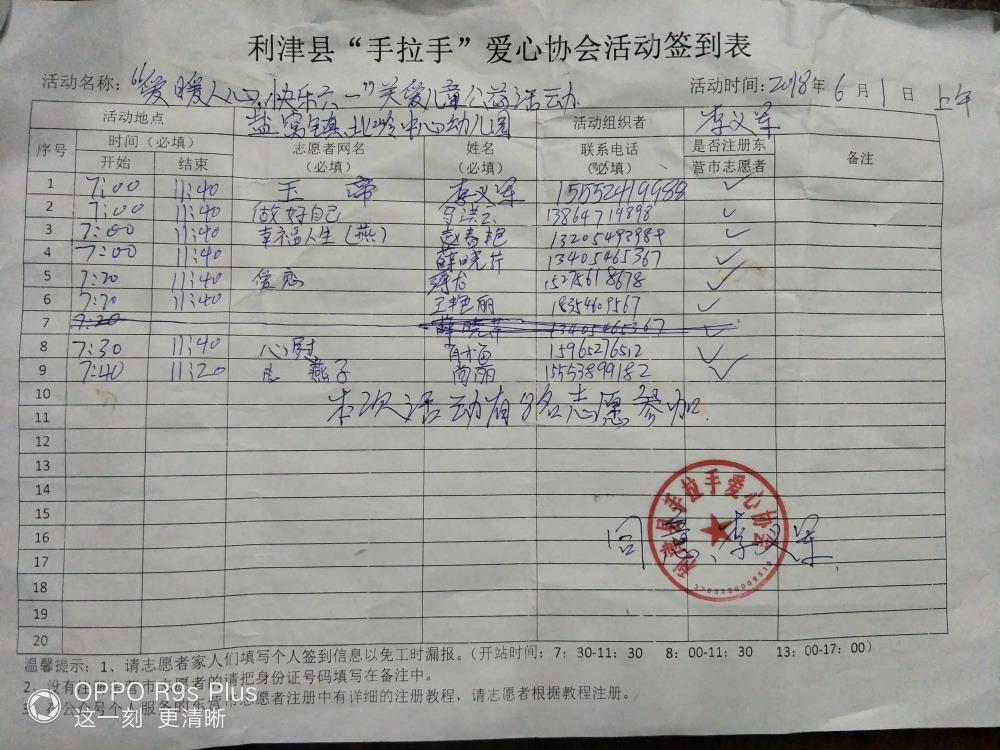 利津县“手拉手”爱心协会活动签到表
活动名称：“爱暖人心，快乐六一”关爱儿童公益活动 活动时间：2018年6月1日 上午
活动地点 盐窝镇北岭中心幼儿园 活动组织者 李义军
序号 时间（必填） 志愿者网名（必填） 姓名（必填） 联系电话（必填） 是否注册东营市志愿者 备注
开始 结束
1 7:00 11:40 玉帝 李义军 15552419988 ✓
2 7:00 11:40 做好自己 13864719898 ✓
3 7:00 11:40 幸福人生（燕） 13205493984 ✓
4 7:00 11:40 薛晓芹 13405465367 ✓
5 7:20 11:40 15275618678 ✓
6 7:20 11:40 王艳丽 18354609567 ✓
7 7:20 薛晓芹 13405465367 ✓
8 7:30 11:40 心慰 15965276512 ✓
9 7:40 11:20 燕子 尚丽 15553899182 ✓
10
11 本次活动有8名志愿参加.
12
13
14
15
16 同意、李义军
17
18
19
20
利津县手拉手爱心协会
温馨提示：1、请志愿者家人们填写个人签到信息以免工时漏报。（开站时间：7：30-11：30 8：00-11：30 13：00-17：00）
2、没有注册东营市志愿者的请把身份证号码填写在备注中。
3、在公众号个人服务的东营市志愿者注册中有详细的注册教程，请志愿者根据教程注册。
OPPO R9s Plus
这一刻 更清晰